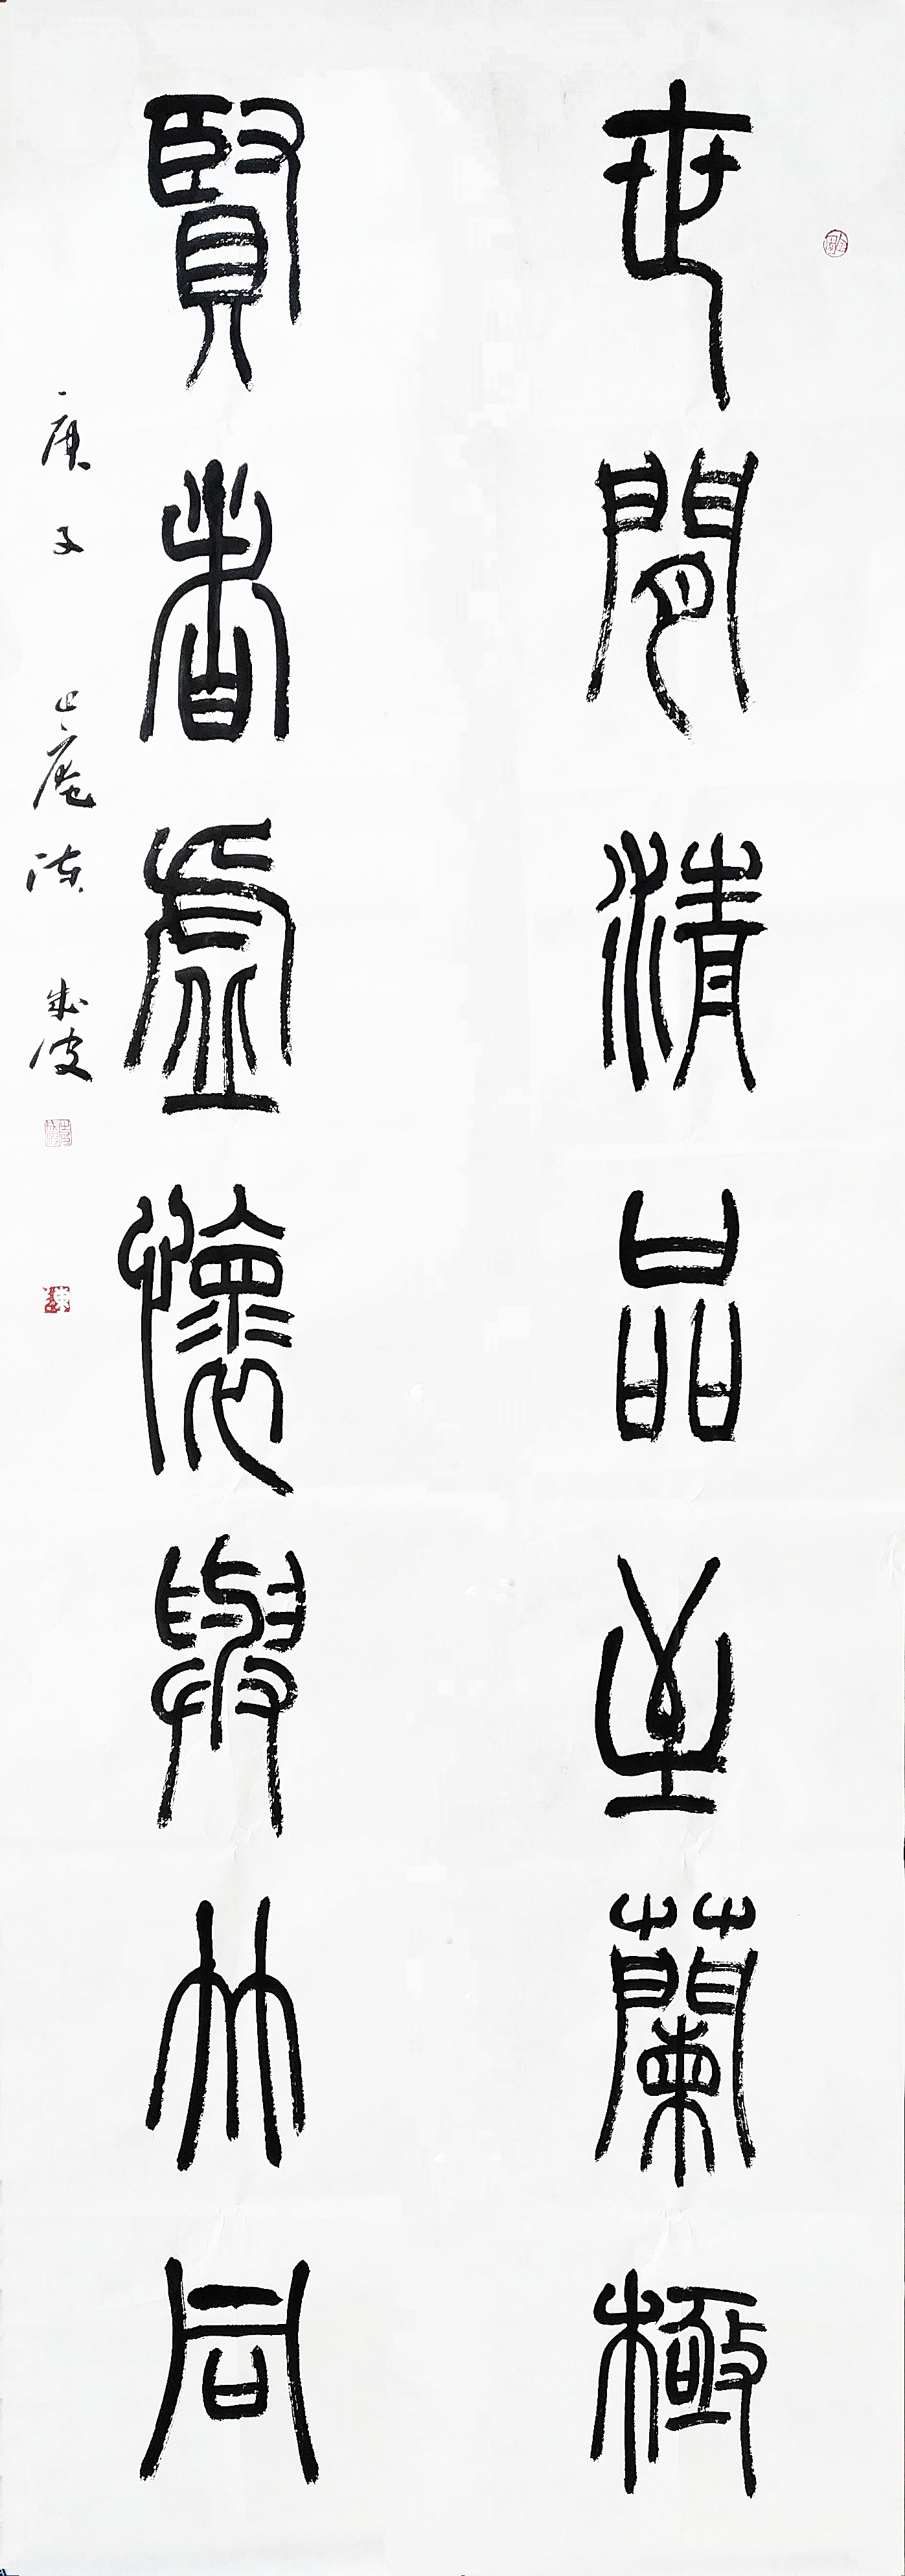 世間清品至蘭極
賢者虛懷與竹同
庚子 止庵陳